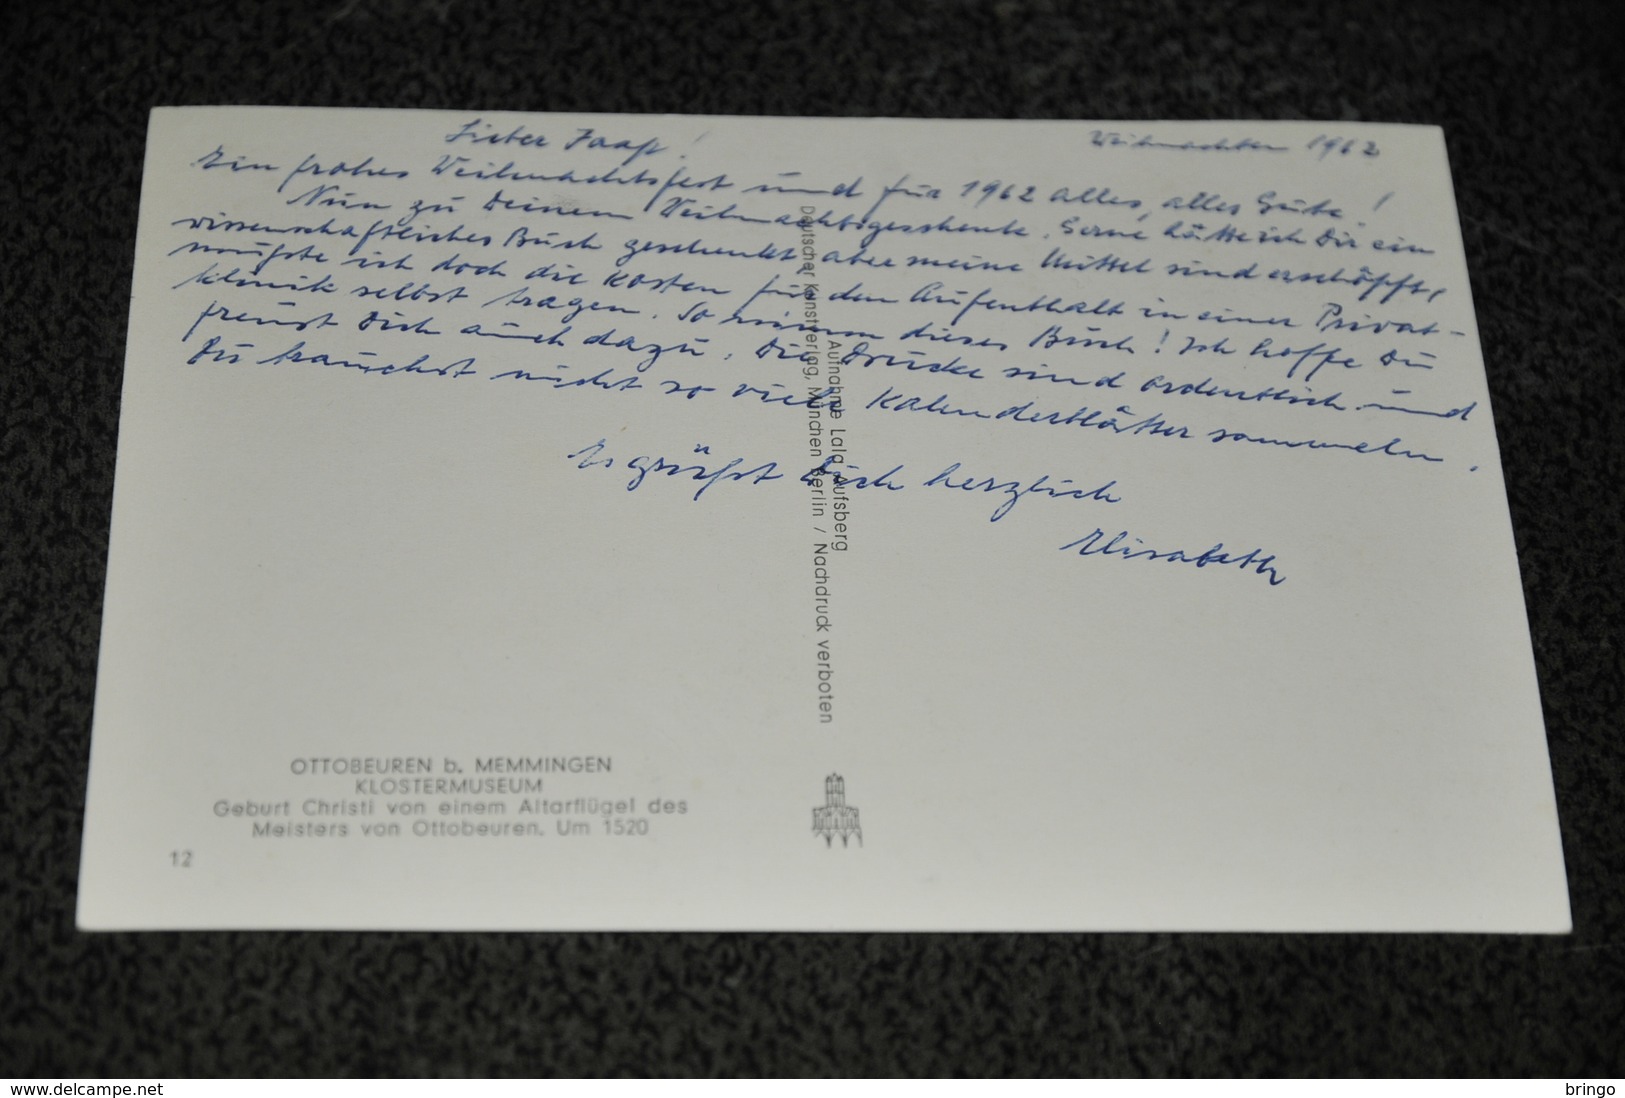 Lieber Jaap!
Weihnachten 1962
Ein frohes Weihnachtsfest und für 1962 alles, alles Gute!
Nun zu Deinem Weihnachtsgeschenk. Gerne hätte ich Dir ein
wissenschaftliches Buch geschenkt, aber meine Mittel sind erschöpft,
mußte ich doch die Kosten für den Aufenthalt in einer Privat-
klinik selbst tragen. So nimm dieses Buch! Ich hoffe Du
freust Dich auch dazu. Die Drucke sind ordentlich und
Du brauchst nicht so viele Kalenderblätter sammeln.
Es grüßt Dich herzlich
Elisabeth
Aufnahme Lala Aufsberg
Deutscher Kunstverlag, München Berlin / Nachdruck verboten
OTTOBEUREN b. MEMMINGEN
KLOSTERMUSEUM
Geburt Christi von einem Altarflügel des
Meisters von Ottobeuren. Um 1520
12
www.delcampe.net
bringo